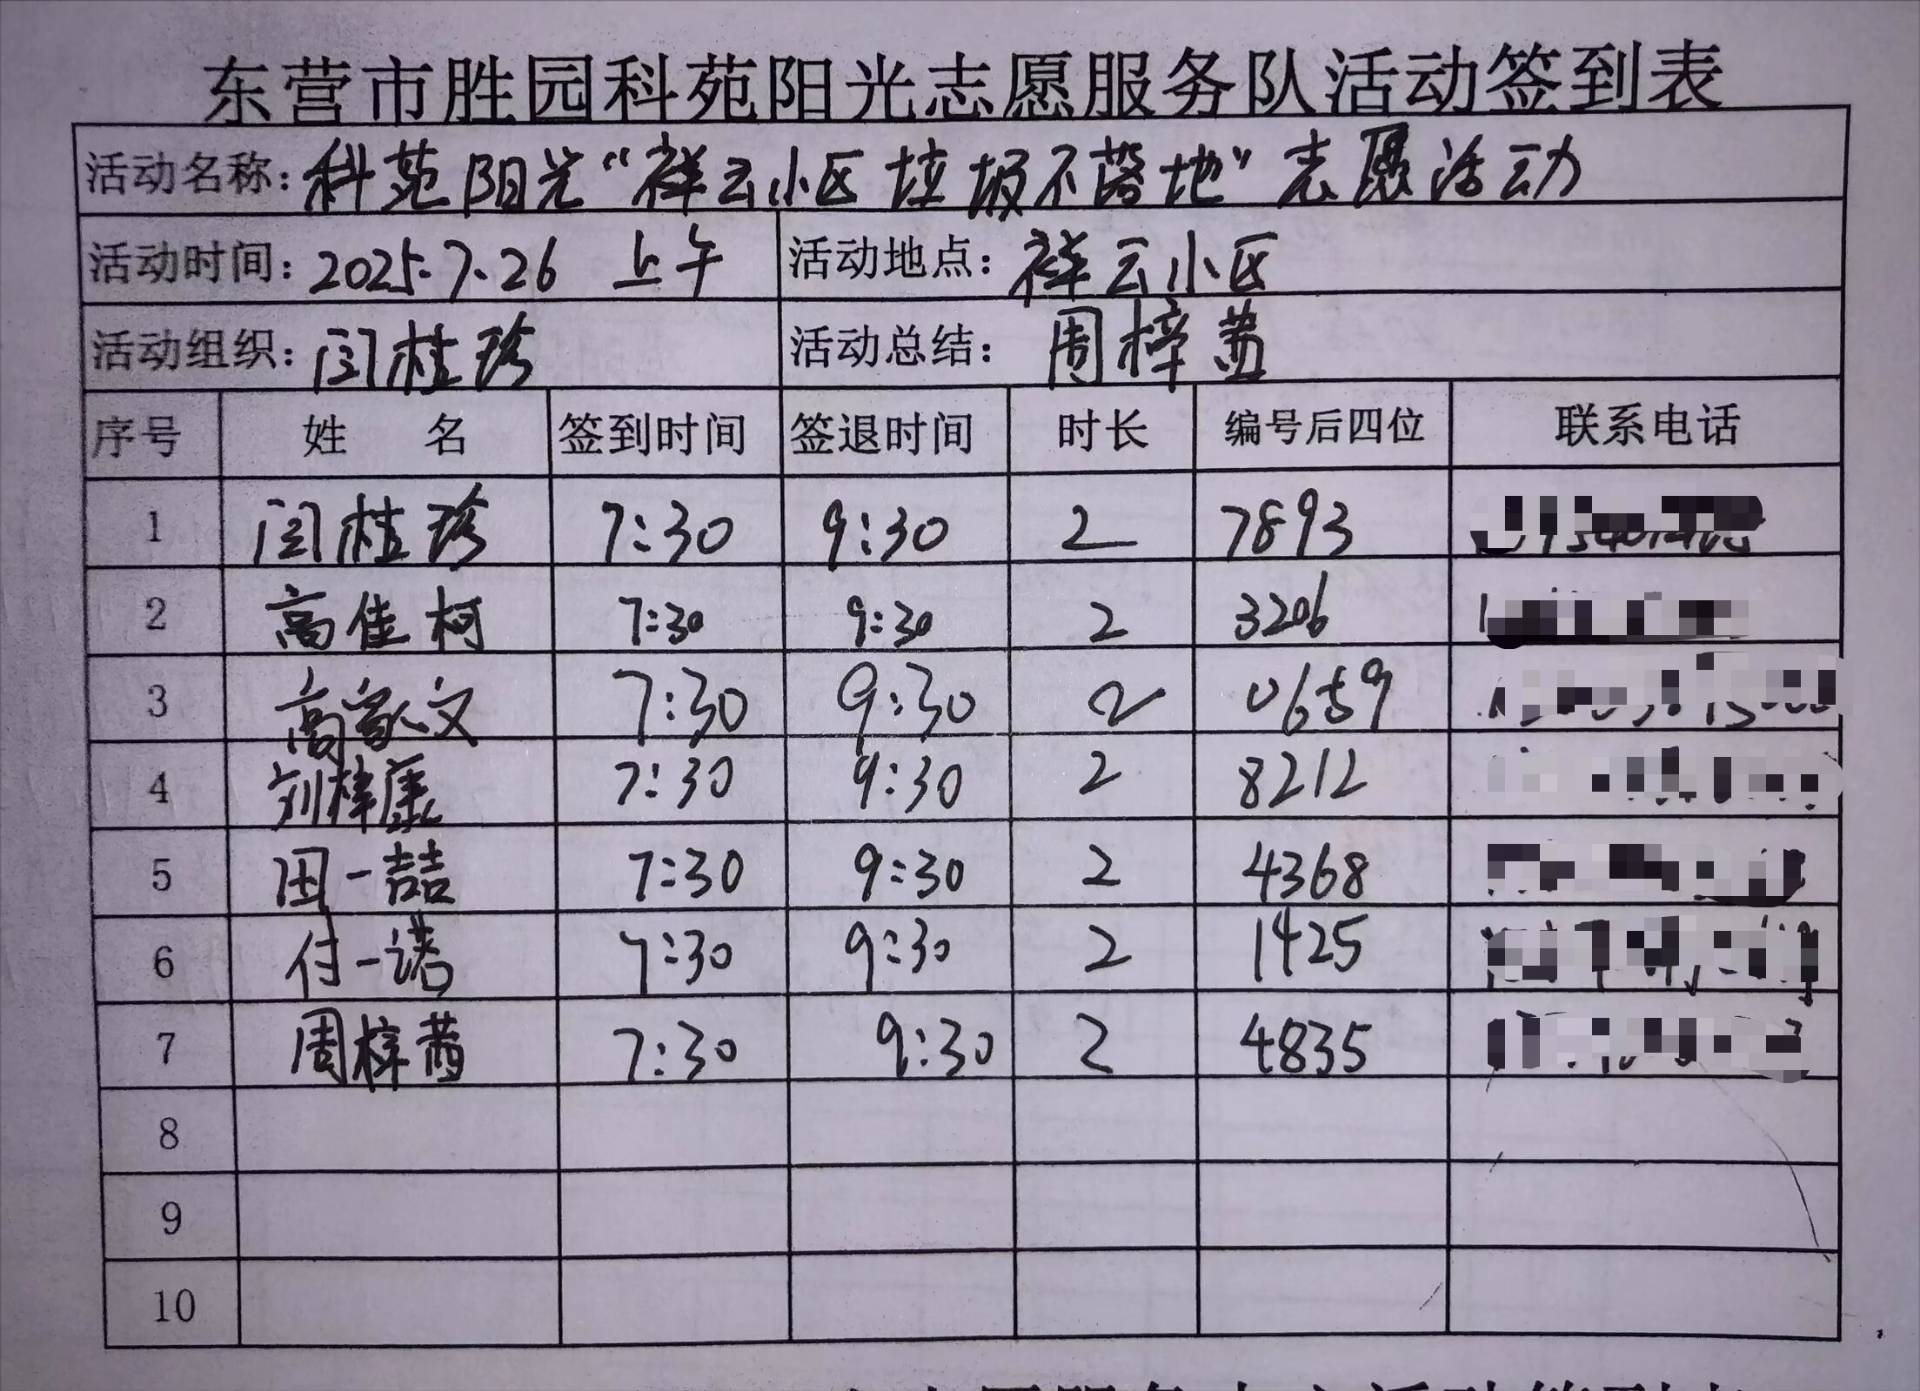 东营市胜园科苑阳光志愿服务队活动签到表
活动名称：科苑阳光“祥云小区垃圾不落地”志愿活动
活动时间：2025.7.26 上午 活动地点：祥云小区
活动组织：闫桂珍 活动总结：周梓茜
序号 姓 名 签到时间 签退时间 时长 编号后四位 联系电话
1 闫桂珍 7:30 9:30 2 7893
2 高佳柯 7:30 9:30 2 3206
3 高家文 7:30 9:30 2 0659
4 刘梓康 7:30 9:30 2 8212
5 田一喆 7:30 9:30 2 4368
6 付一诺 7:30 9:30 2 1425
7 周梓茜 7:30 9:30 2 4835
8
9
10